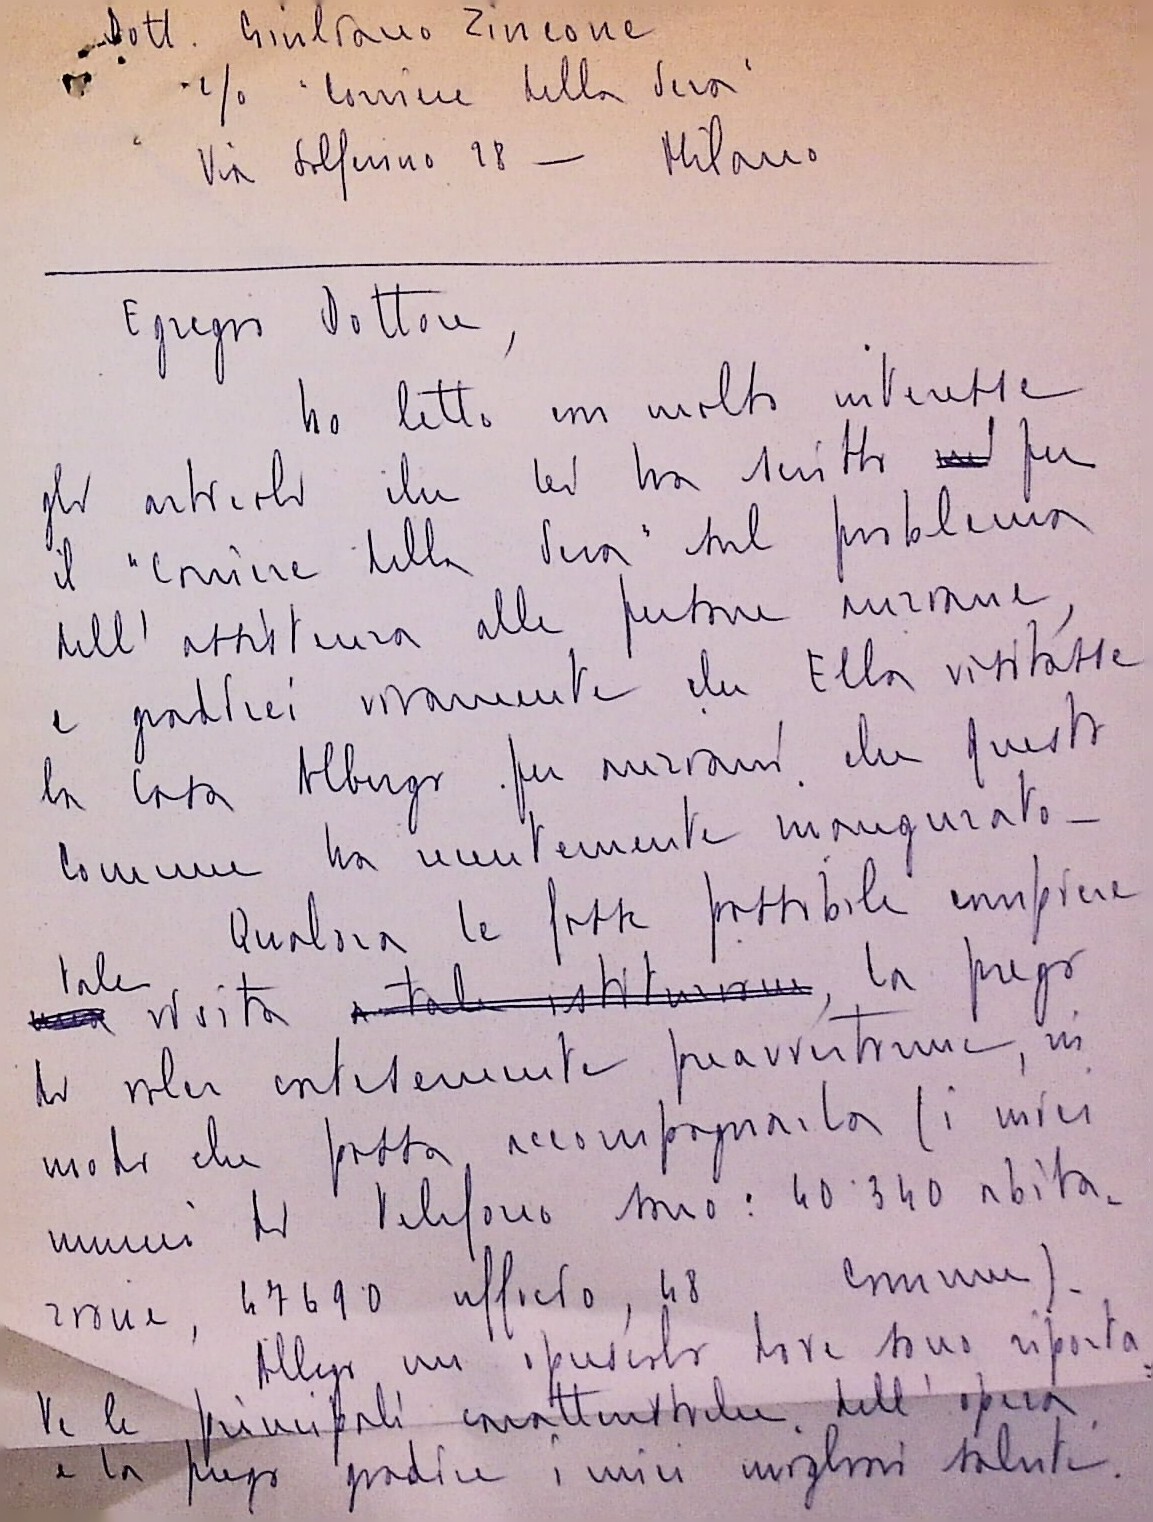 Dott. Giuliano Zincone
c/o "Corriere della Sera"
Via Solferino 28 — Milano
Egregio Dottore,
ho letto con molto interesse
gli articoli che Lei ha scritto per
il "Corriere della Sera" sul problema
dell'assistenza alle persone anziane,
e gradirei vivamente che Ella visitasse
la Casa Albergo per anziani che questo
Comune ha recentemente inaugurato —
Qualora Le fosse possibile compiere
tale
visita a tale istituzione, La prego
di voler cortesemente preavvertirme, in
modo che possa accompagnarLa (i miei
numeri di telefono sono: 40.340 abita-
zione, 47690 ufficio, 48 Comune).-
Allego un opuscolo dove sono riporta-
te le principali caratteristiche dell'opera
e La prego gradire i miei migliori saluti.